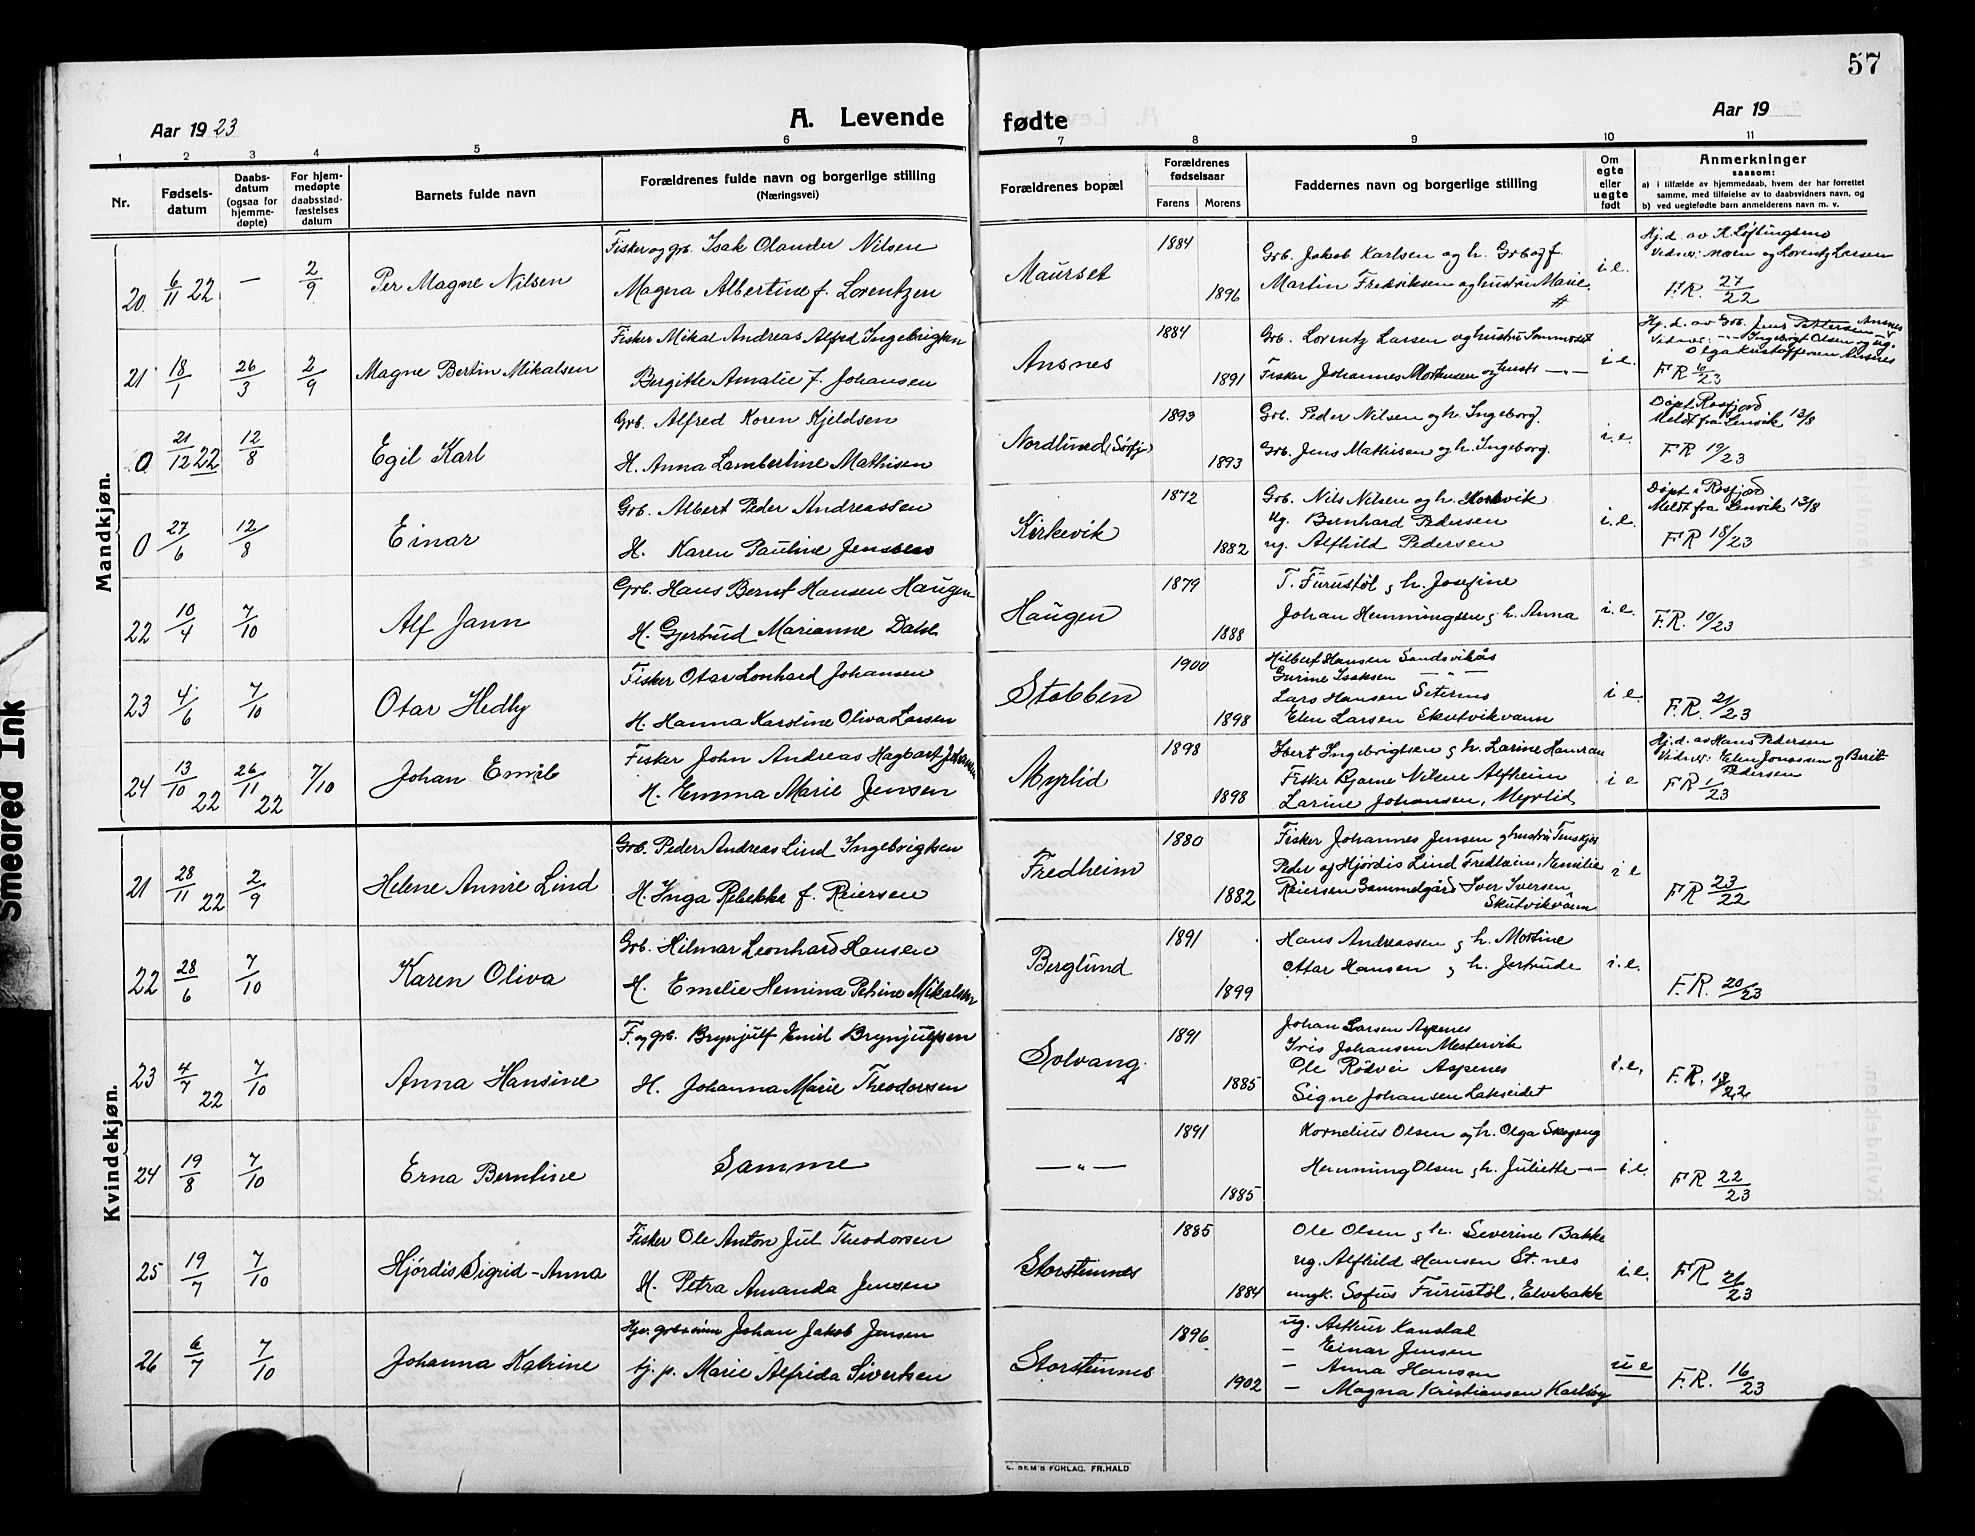 57
Aar 1923
A. Levende
fødte
Aar 19
1 2 3 4 5 6 7 8 9 10 11
Nr.
Fødsels-
datum
Daabs-
datum
(ogsaa for
hjemme-
døpte)
For hjem-
medøpte
daabsstad-
fæstelses
datum
Barnets fulde navn
Forældrenes fulde navn og borgerlige stilling
(Næringsvei)
Forældrenes bopæl
Forældrenes
fødselsaar
Farens Morens
Faddernes navn og borgerlige stilling
Om
egte
eller
uegte
født
Anmerkninger
saasom:
a) i tilfælde av hjemmedaab, hvem der har forrettet
samme, med tilføielse av to daabsvidners navn, og
b) ved uegtefødte barn anmelderens navn m. v.
Mandkjøn.
20 6/11 22 — 2/9 Per Magne Nilsen
Fisker og grb. Isak Olander Nilsen
Magna Albertine f. Lorentzen
Maurset 1884 1896
Grb. Jakob Karlsen og h. Grb og f.
Martin Fredriksen og hustru Marie
i.e.
Hj.d. av
Vidner: Moren og Lorentz Larsen
F.R. 27/22
21 18/1 26/3 2/9 Magne Bertin Mikalsen
Fisker Mikal Andreas Alfred Ingebrigtsen
Bergitte Amalie f. Johansen
Ansnes 1884 1891
Grb. Lorentz Larsen og hustru Sommerset
Fisker Johannes Mortensen og hustr —"—
i.e.
Hj. d. av Grb. Jens Pettersen Ansnes
Vidner: —"— Ingebrigt Olsen og ug.
Olga Kristoffersen Ansnes
F R 6/23
0 21/12 22 12/8 Egil Karl
Grb. Alfred Koren Kjeldsen
H. Anna Lambertine Mathisen
Nordlund (Sørfj) 1893 1893
Grb. Peder Nilsen og h. Ingeborg.
Grb. Jens Mathisen og h. Ingeborg.
i.e.
Døpt i Rosfjord
Meldt fra Lenvik 13/8
F R 19/23
0 27/6 12/8 Einar
Grb. Albert Peder Andreassen
H. Karen Pauline Jenssen
Kirkevik 1872 1882
Grb. Nils Nilsen og h. Kirkevik
Ug. Bernhard Pedersen
ug. Alfhild Pedersen
i.e.
Døpt i Rosfjord
Meldt fra Lenvik 13/8
F R 18/23
22 10/4 7/10 Alf Jann
Grb. Hans Bernt Hansen Haugen
H. Gjertrud Marianne Dahl
Haugen 1879 1888
T. Furustøl og h. Josefine
Johan Henningsen og h. Anna
i.e.
F.R. 10/23
23 4/6 7/10 Otar Hedly
Fisker Otar Lonhard Johansen
H. Hanna Karoline Oliva Larsen
Stobben 1900 1898
Hilbert Hansen Sandsvikås
Gurine Isaksen —"—
Lars Hansen Seternes
Elen Larsen Skutvikvann
i e
F.R. 21/23
24 13/10 22 26/11 22 7/10 Johan Emil
Fisker John Andreas Hagbart Johansen
H. Emma Marie Jensen
Myrlid 1898 1898
Ibert Ingebrigtsen og h. Larine
Fisker Bjarne Nilsen Alfheim
Larine Johansen, Myrlid
i e
Hj. d. av Hans Pedersen
Vidner: Elen Jonassen og Berit
Pedersen
F R 1/23
Kvindekjøn.
21 28/11 22 2/9 Helene Annie Lind
Grb. Peder Andreas Lind Ingebrigtsen
H. Inga Rebekka f. Reiersen
Fredheim 1880 1882
Fisker Johannes Jensen og hustru Tenskjær
Peder og Hjørdis Lind Fredheim, Emilie
Reiersen Gammelgård Iver Iversen,
Skutvikvann
i e
F R 23/22
22 28/6 7/10 Karen Oliva
Grb. Hilmar Leonhard Hansen
H. Emelie Hemina Petrine Mikalsen
Berglund 1891 1899
Hans Andreassen og h. Martine
Ottar Hansen og h. Jertrude
i.e.
F.R. 20/23
23 4/7 22 7/10 Anna Hansine
F. og grb. Brynjulf Emil Brynjulfsen
H. Johanna Marie Theodorsen
Solvang. 1891 1885
Johan Larsen Aspenes
Iris Johansen Mestervik
Ole Rödvei Aspenes
Signe Johansen Lakseidet
i.e.
F.R. 18/22
24 19/8 7/10 Erna Berntine
Samme
—"— 1891 1885
Kornelius Olsen og h. Olga Skogeng
Henning Olsen og h. Juliette —"—
i.e.
F R 22/23
25 19/7 7/10 Hjördis Sigrid-Anna
Fisker Ole Anton Jul Theodorsen
H. Petra Amanda Jensen
Storsteinnes 1885 1884
Ole Olsen og h. Severine Bakke
ug. Alfhild Hansen St.nes
ungk. Sofus Furustøl, Elvebakke
i.e.
F R 21/23
26 6/7 7/10 Johanna Katrine
Johan Jakob Jensen
tj. p. Marie Alfrida Sivertsen
Storsteinnes 1896 1902
ug. Arthur Kanstad
— Einar Jensen
— Anna Hansen
— Magna Kristiansen Karlsøy
u e
F.R. 16/23
E. SEM'S FORLAG, FR.HALD
Smeared Ink